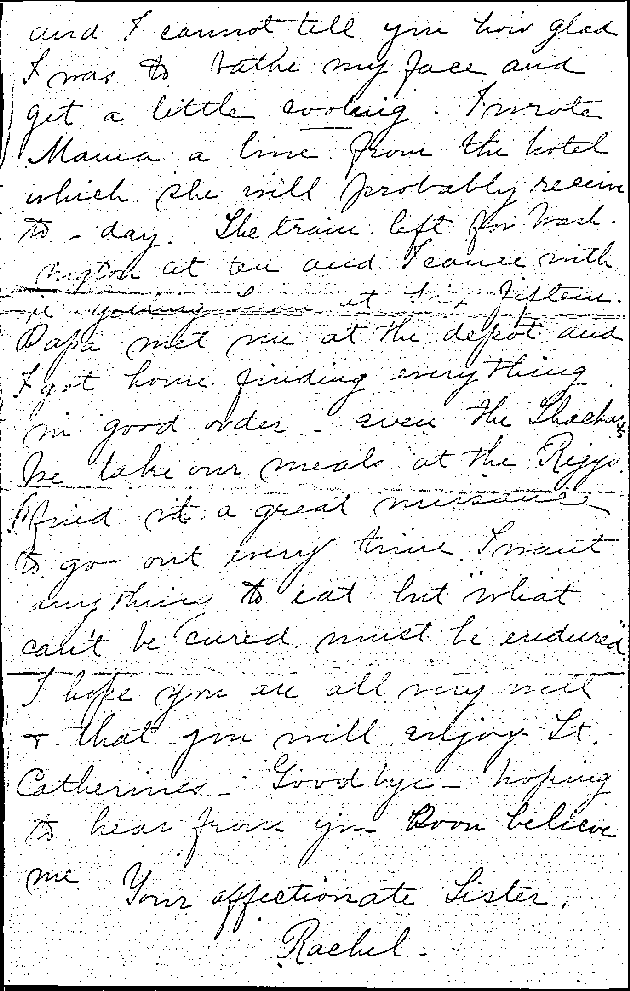 and I cannot tell you how glad
I was to bathe my face and
get a little cooling. I wrote
Mama a line from the hotel
which she will probably receive
to-day. The train left for Wash-
ington at ten and I came with
it at fifteen.
Papa met me at the depot and
I got home finding everything
in good order - even the
We take our meals at the Riggs.
I find it a great nuisance
to go out every time I want
anything to eat but "what
can't be cured must be endured"
I hope you are all very well
+ that you will enjoy St.
Catherines - Good bye - hoping
to hear from you soon believe
me
Your affectionate Sister,
Rachel -